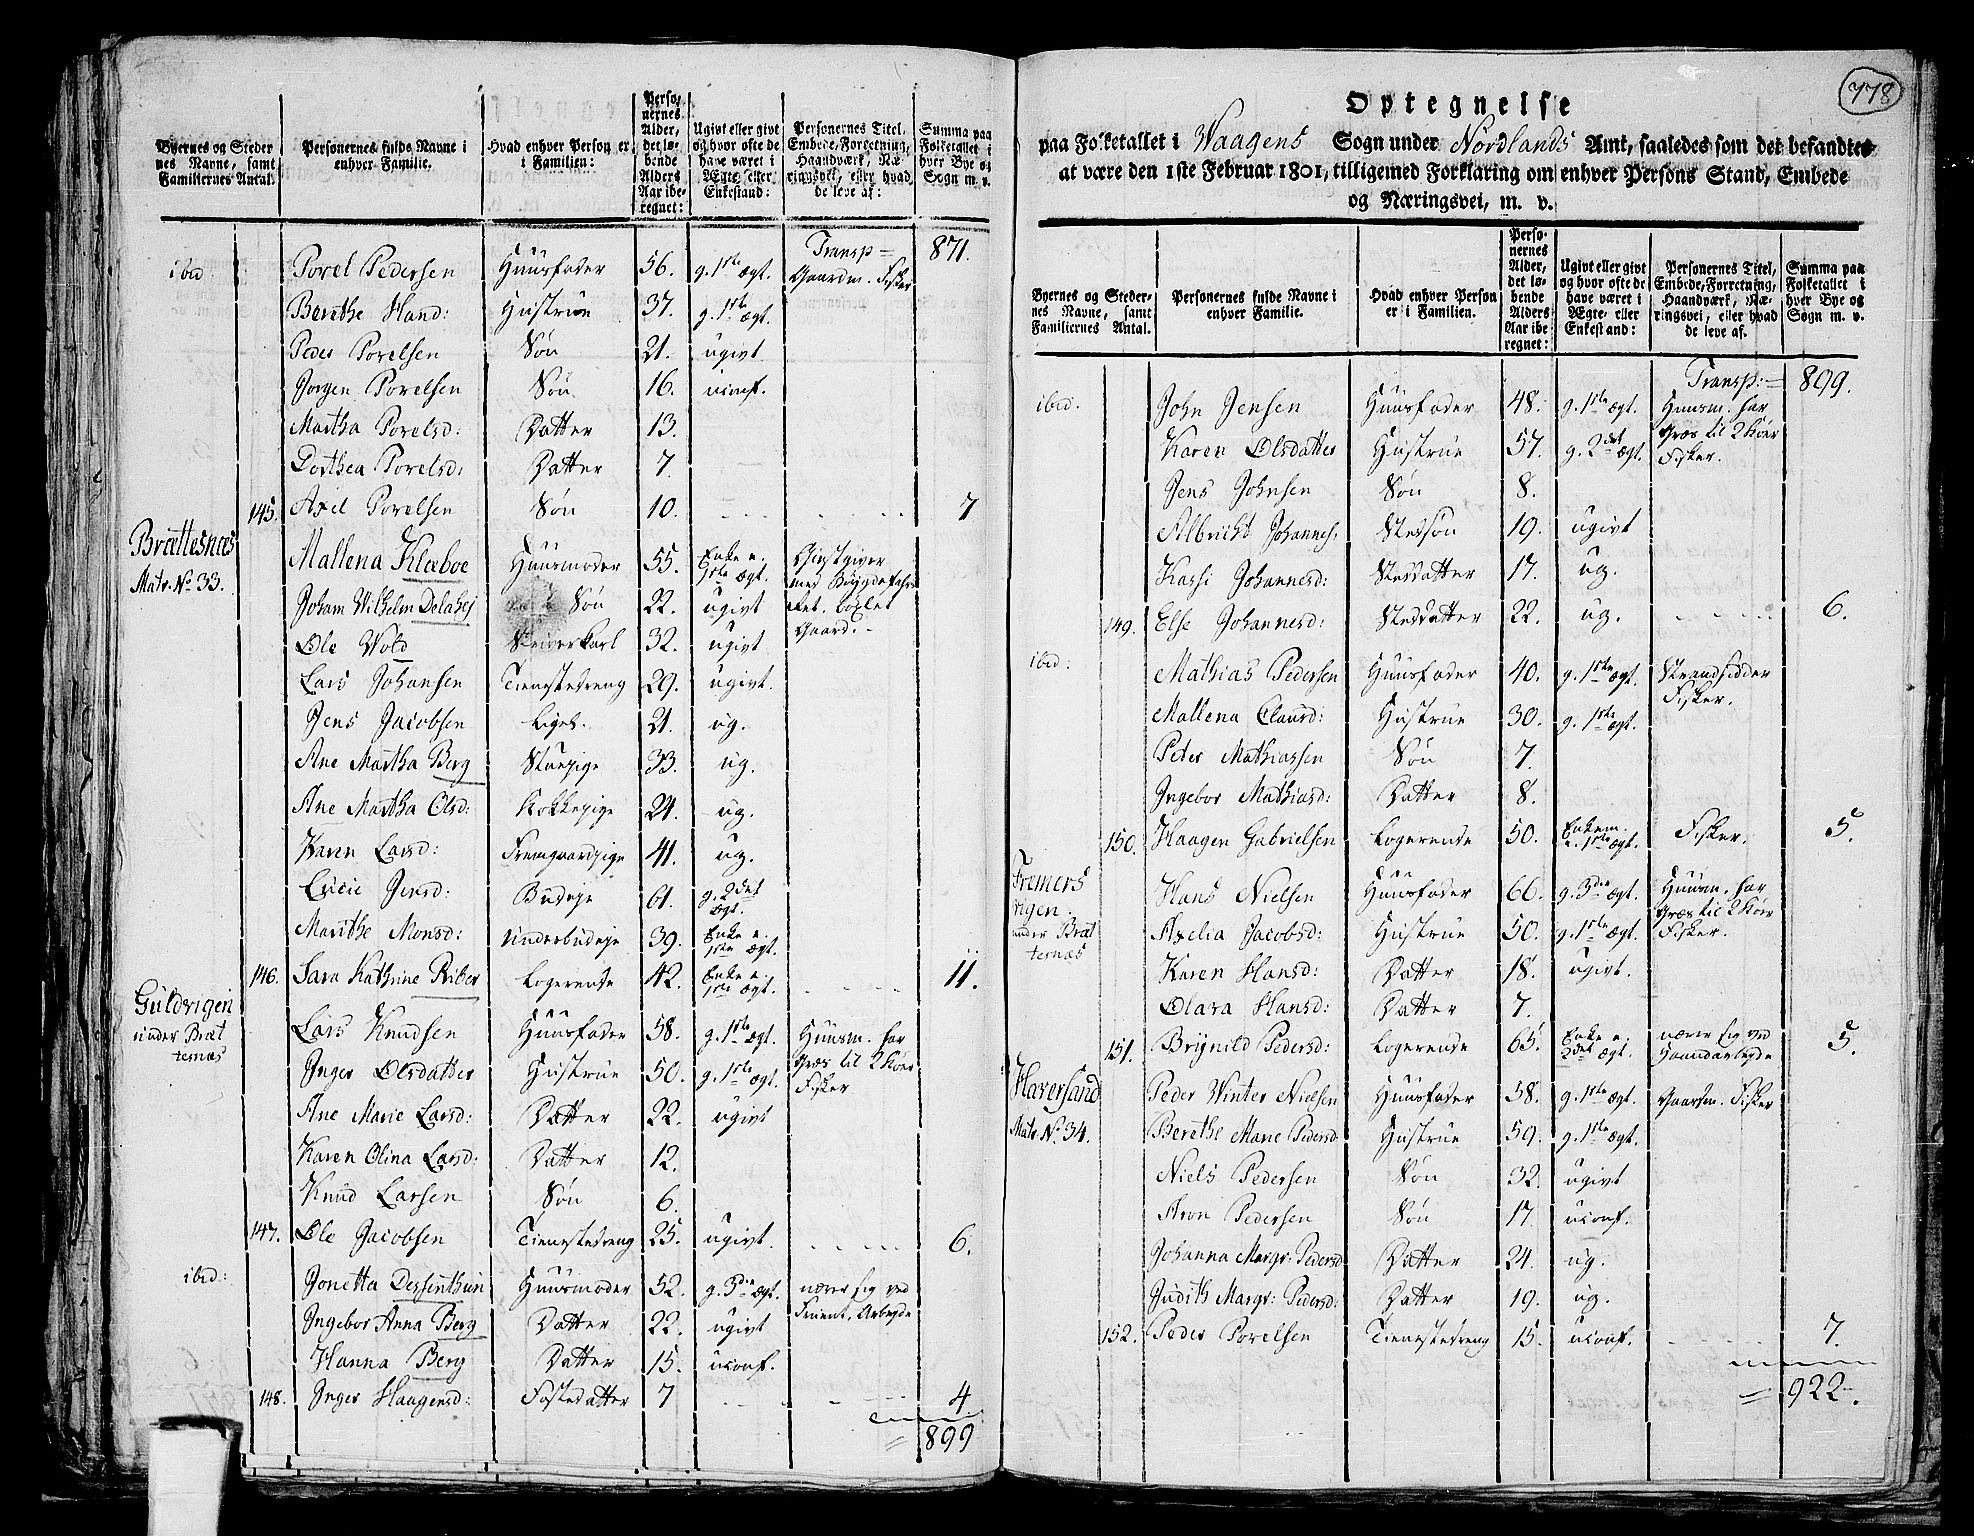 Byernes og Steder
nes Navne, samt
Familiernes Antal.
Personernes fulde Navne i
enhver Familie.
Hvad enhver Person er
i Familien:
Perso-
nernes
Alder,
det lø-
bende
Alders
Aar ibe
regnet:
Ugivt eller givt
og hvor ofte de
have været i
Ægte- eller
Enkestand:
Personernes Titel,
Embede, Forretning,
Haandværk, Næ-
ringsvei, eller hvad
de leve af:
Summa paa
Folketallet i
hver Bye og
Sogn m. v.
Transp= 871.
ibid. Porel Pedersen Huusfader 56. g. 1ste ægt. Gaardm. Fisker
Berethe Hand: Hustrue 37. g. 1ste ægt.
Peder Porelsen Søn 21. ugivt
Jørgen Porelsen Søn 16. uconf.
Martha Porelsd: Datter 13.
Dorthea Porelsd: Datter 7.
145. Axel Porelsen Søn 10. 7
Brættesnæs
Matr. No 33.
Mallena Klæboe Huusmoder 55. Enke e. 1ste ægt. Giestgiver
Joham Wilhelm Delahej Søn 22. ugivt
Ole Wold Skriverkarl 32. ugivt Gaard.
Lars Johansen Tienestedreng 29. ugivt.
Jens Jacobsen Ligel. 21. ug.
Ane Martha Berg Stuepige 33. ug.
Ane Martha Olsd: Kokkepige 24. ug.
Karen Larsd: Fremgaardpige 41. ug.
Lucie Jensd: Budeje 61. g. 2det ægt.
Marithe Monsd: Underbudeje 39. Enke e. 1ste ægt.
146. Sara Kathrine Riber Logerende 42. Enke e. 1ste ægt. 11.
Guldvigen
under Bræt
ternæs
Lars Knudsen Huusfader 58. g. 1ste ægt. Huusm. har
Inger Olsdatter Hustrue 50. g. 1ste ægt. Græs til 2 Kiør
Fisker
Ane Marie Larsd: Datter 22. ugivt
Karen Olina Larsd: Datter 12.
Knud Larsen Søn 6.
147. Ole Jacobsen Tienestedreng 25. ugivt. 6.
ibid: Jonetta Dessenthun Huusmoder 52. g. 3die ægt. nærer sig ved
Ingebor Anna Berg Datter 22. ugivt Fruent. Arbeyde
Hanna Berg Datter 15. uconf.
148. Inger Haagensd: Fosterdatter 7 4.
= 899
778
Optegnelse
paa Folketallet i Waagens Sogn under Nordlands Amt, saaledes som det befandtes
at være den 1ste Februar 1801, tilligemed Forklaring om enhver Persons Stand, Embede
og Næringsvei, m. v.
Byernes og Steder-
nes Navne, samt
Familiernes Antal.
Personernes fulde Navne i
enhver Familie.
Hvad enhver Person
er i Familien.
Perso-
nernes
Alder,
det lø-
bende
Alders
Aar ibe
regnet:
Ugivt eller givt
og hvor ofte de
have været i
Ægte- eller
Enkestand:
Personernes Titel,
Embede, Forretning,
Haandværk, Næ-
ringsvei, eller hvad
de leve af.
Summa paa
Folketallet i
hver Bye og
Sogn m. v.
Transp:= 899.
ibid. John Jensen Huusfader 48. g. 1ste ægt. Huusm. har
Karen Olsdatter Hustrue 57. g. 2det ægt. Græs til 2 Kiør
Fisker.
Jens Johnsen Søn 8.
Albricht Johannes. Stedsøn 19. ugivt
Kassi Johannesd: Steddatter 17. ug.
149. Else Johannesd: Steddatter 22. ug. 6.
ibid: Mathias Pedersen Huusfader 40. g. 1ste ægt. Strandsidder
Fisker.
Mallena Clausd: Hustrue 30. g. 1ste ægt.
Peter Mathiassen Søn 7.
Ingebor Mathiasd: Datter 8.
150. Haagen Gabrielsen Logerende 50. Enkem. e. 1ste ægt. Fisker. 5.
Fremers
vigen
under Bræt
ternæs
Hans Nielsen Huusfader 66. g. 3die ægt. Huusm. har
Axelia Jacobsd: Hustrue 50. g. 1ste ægt. Græs til 2 Kiør
Fisker.
Karen Hansd: Datter 18. ugivt.
Olara Hansd: Datter 7.
151. Brynild Pedersd: Logerende 65. Enke e. 2det ægt. nærer sig ved Haandarbeyde 5.
Haversand
Matr. No. 34.
Peder Winter Nielsen Huusfader 58. g. 1ste ægt. Gaardm. Fisker
Berethe Marie Pedersd: Hustrue 59. g. 1ste ægt.
Niels Pedersen Søn 32. ugivt
Aron Pedersen Søn 17. uconf.
Johanna Margr: Pedersd Datter 24. ug.
Judith Margr: Pedersd: Datter 19. ug.
152. Peder Porelsen Tienestedreng 15. uconf. 7.
= 922.